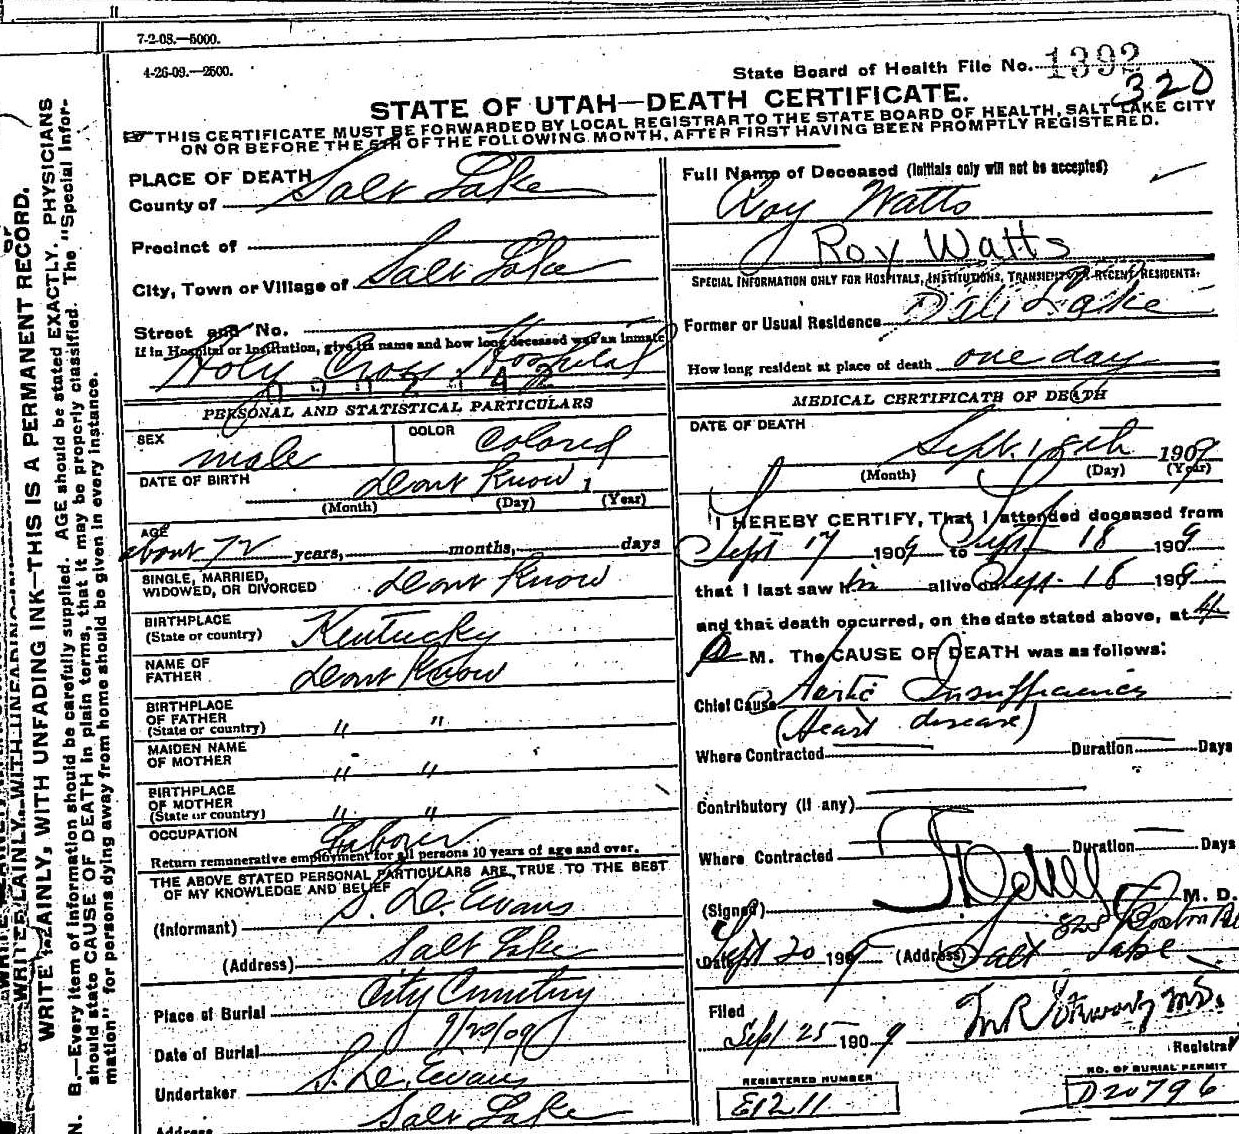 7-2-08.—5000.
4-26-09.—2500.
State Board of Health File No. 1392
320
STATE OF UTAH—DEATH CERTIFICATE.
THIS CERTIFICATE MUST BE FORWARDED BY LOCAL REGISTRAR TO THE STATE BOARD OF HEALTH, SALT LAKE CITY
ON OR BEFORE THE 5TH OF THE FOLLOWING MONTH, AFTER FIRST HAVING BEEN PROMPTLY REGISTERED.
PLACE OF DEATH
County of Salt Lake
Precinct of
City, Town or Village of Salt Lake
Street and No.
If in Hospital or Institution, give its name and how long deceased was an inmate
Holy Cross Hospital
PERSONAL AND STATISTICAL PARTICULARS
SEX male
COLOR Colored
DATE OF BIRTH dont Know 1
(Month) (Day) (Year)
AGE
about 72 years, months, days
SINGLE, MARRIED,
WIDOWED, OR DIVORCED dont Know
BIRTHPLACE
(State or country) Kentucky
NAME OF
FATHER dont Know
BIRTHPLACE
OF FATHER
(State or country) " "
MAIDEN NAME
OF MOTHER " "
BIRTHPLACE
OF MOTHER
(State or country) " "
OCCUPATION Laborer
Return remunerative employment for all persons 10 years of age and over.
THE ABOVE STATED PERSONAL PARTICULARS ARE TRUE TO THE BEST
OF MY KNOWLEDGE AND BELIEF
(Informant) S. D. Evans
(Address) Salt Lake
Place of Burial City Cemetry
Date of Burial 9/20/09
Undertaker S. D. Evans
Address Salt Lake
Full Name of Deceased (Initials only will not be accepted)
Roy Watts
Roy Watts
SPECIAL INFORMATION ONLY FOR HOSPITALS, INSTITUTIONS, TRANSIENTS OR RECENT RESIDENTS:
Former or Usual Residence Salt Lake
How long resident at place of death one day
MEDICAL CERTIFICATE OF DEATH
DATE OF DEATH
Sept. 18th 1909
(Month) (Day) (Year)
I HEREBY CERTIFY, That I attended deceased from
Sept 17 1909 to Sept 18 1909
that I last saw him alive on Sept. 18 1909
and that death occurred, on the date stated above, at 4
a M. The CAUSE OF DEATH was as follows:
Chief Cause Aortic Insufficiency
(Heart disease)
Where Contracted Duration Days
Contributory (if any)
Where Contracted Duration Days
(Signed) M. D.
Date Sept 20 1909 (Address) 825 Boston
Salt Lake
Filed
Sept 25 1909
Registrar
REGISTERED NUMBER
E1211
NO. OF BURIAL PERMIT
D20796
WRITE PLAINLY, WITH UNFADING INK—THIS IS A PERMANENT RECORD.
N. B.—Every item of information should be carefully supplied. AGE should be stated EXACTLY. PHYSICIANS
should state CAUSE OF DEATH in plain terms, that it may be properly classified. The "Special Infor-
mation" for persons dying away from home should be given in every instance.